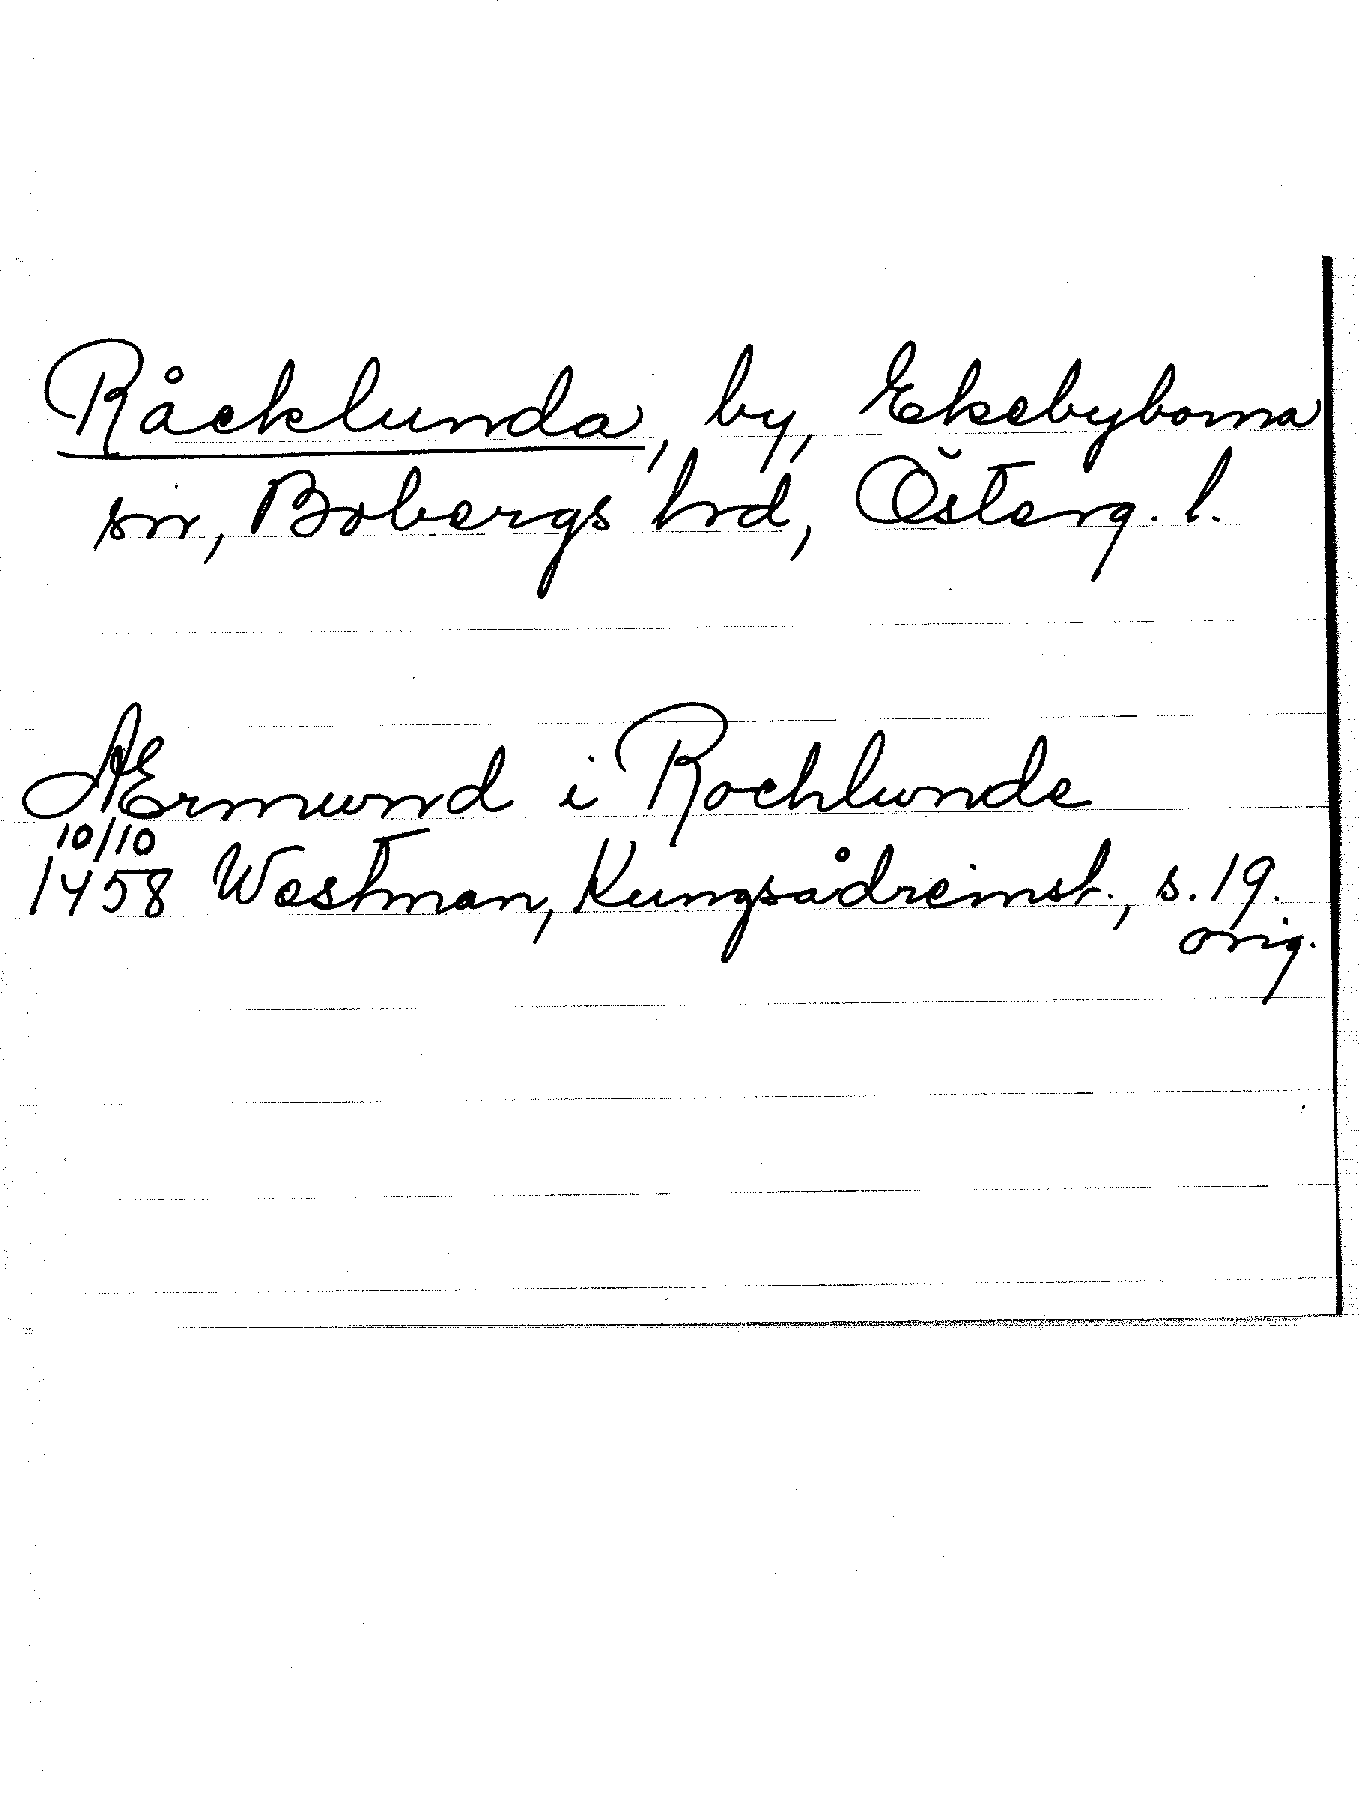 Råcklunda, by, Ekebyborna
sn, Bobergs hrd, Österg. l.
Æermund i Rochlunde
10/10
1458 Westman, Kungsådreinst., s. 19.
orig.